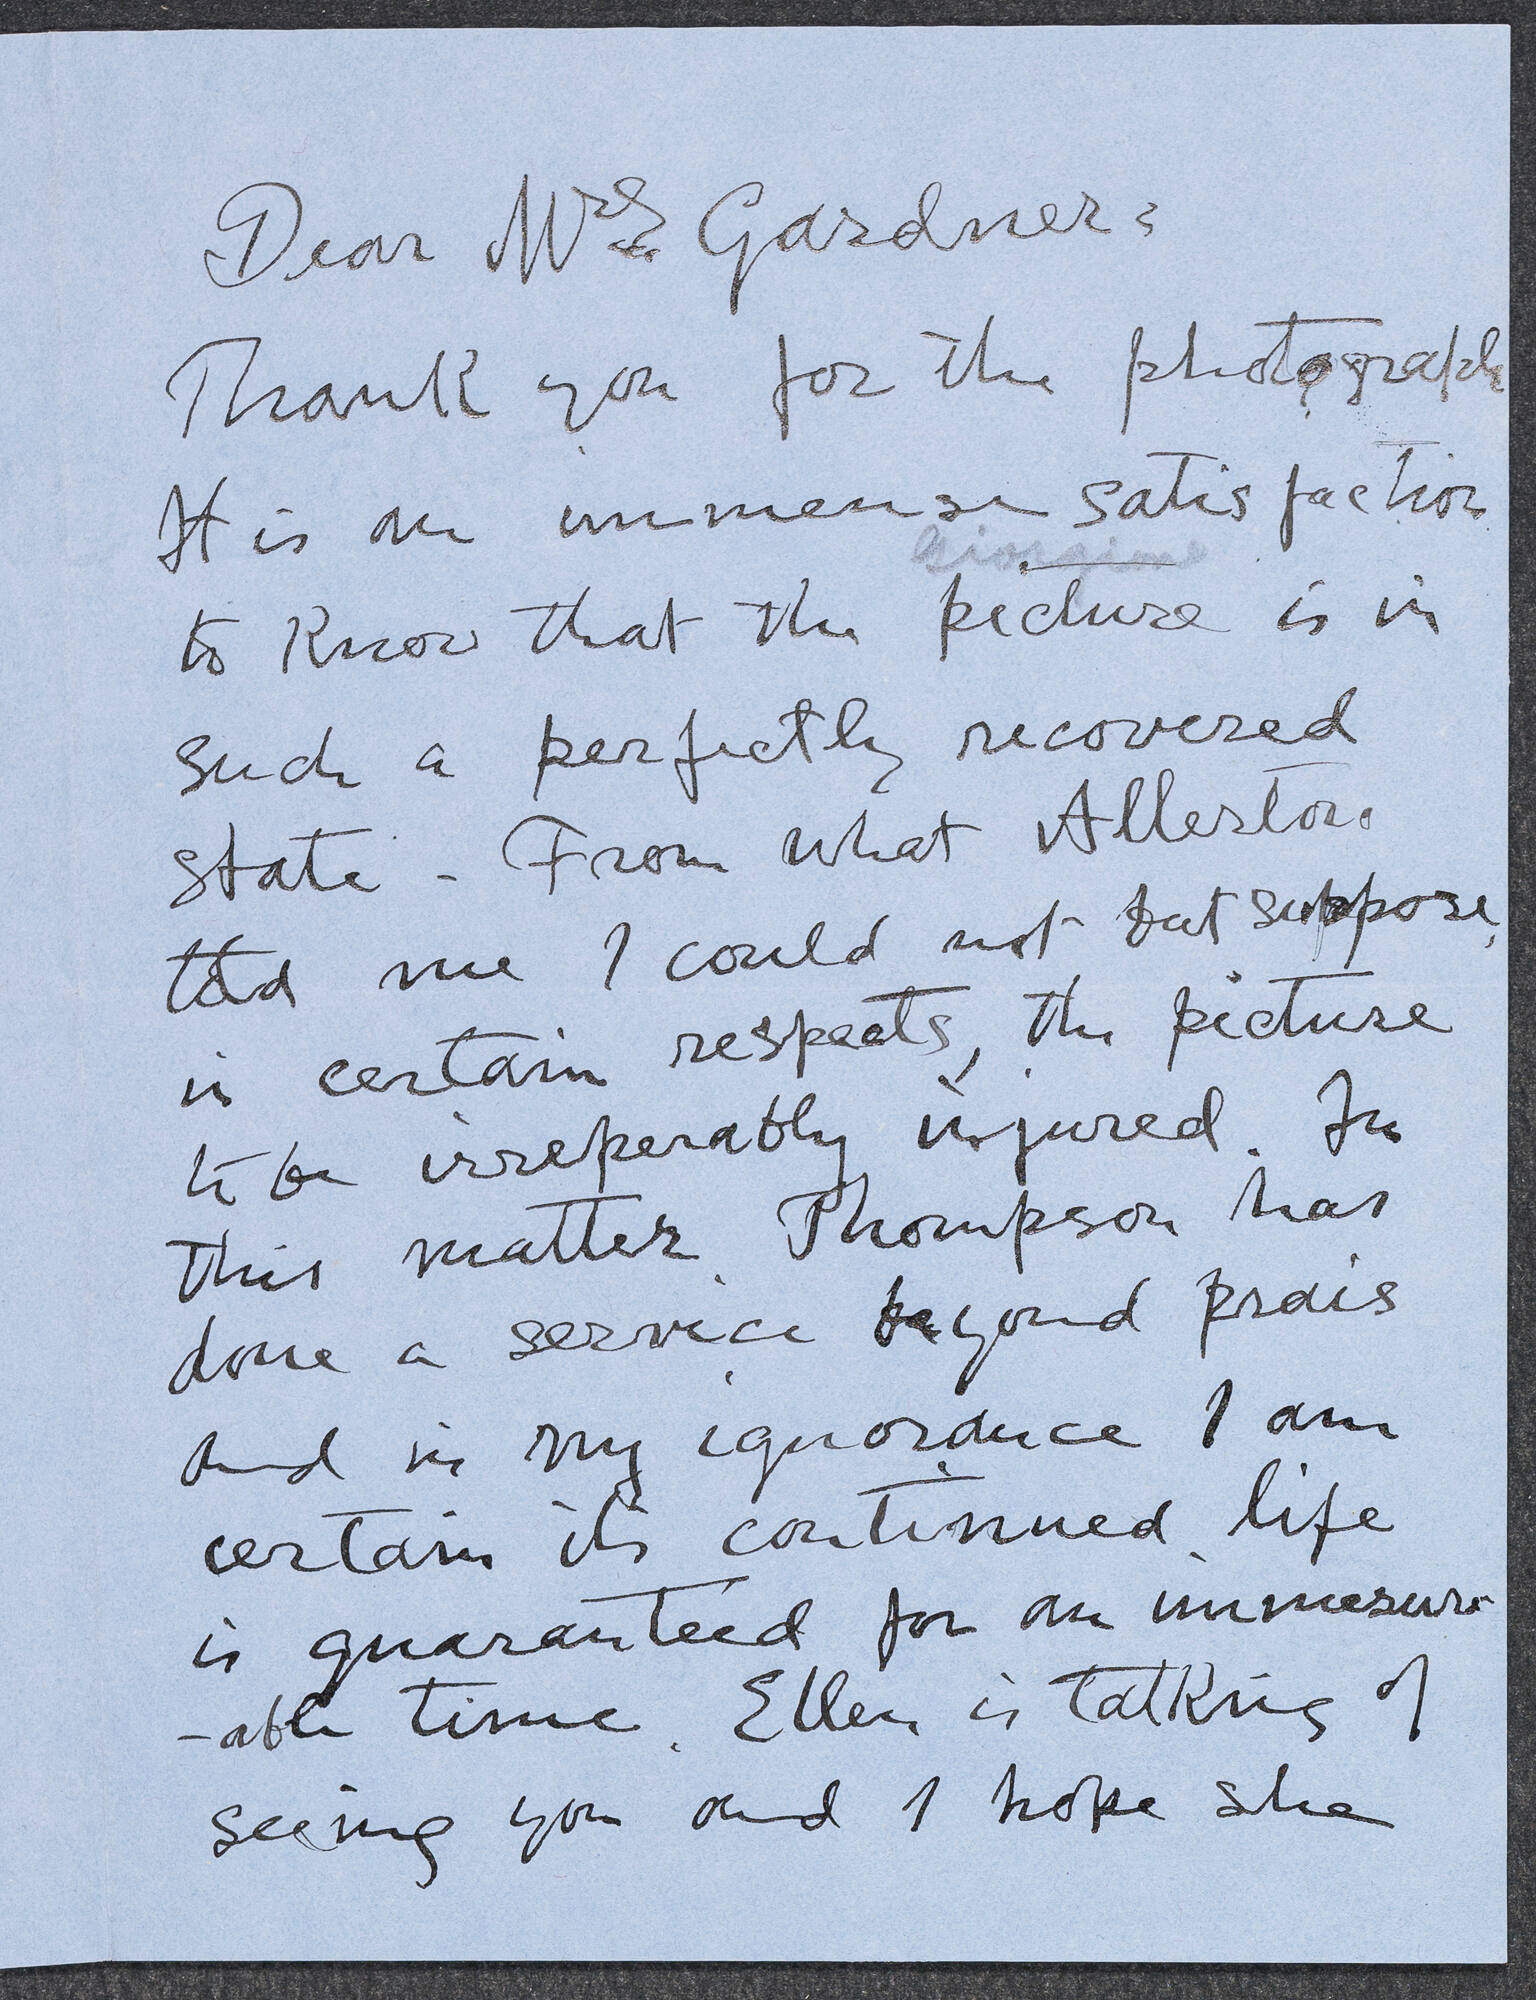 Dear Mrs Gardner:
Thank you for the photograph
It is an immense satisfaction
Giorgione
to know that the picture is in
such a perfectly recovered
state - From what Allerton
told me I could not but suppose,
in certain respects, the picture
to be irreperably injured. In
this matter Thompson has
done a service beyond prais
and in my ignorance I am
certain its continued life
is guaranteed for an immesur-
-able time. Ellen is talking of
seeing you and I hope she